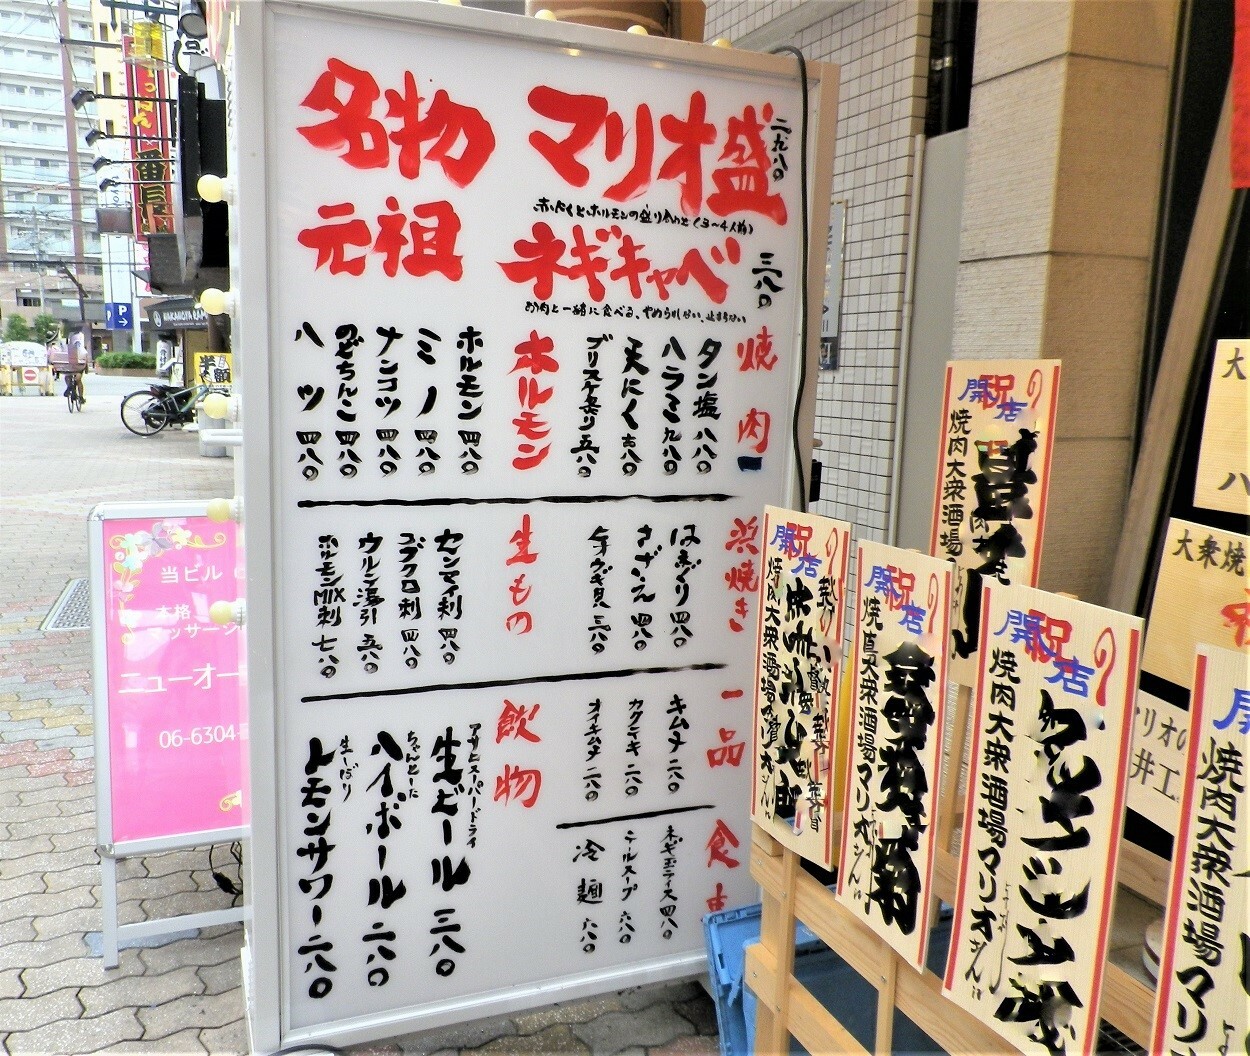 名物 マリオ盛 二九八〇
赤にくとホルモンの盛り合わせ(3〜4人前)
元祖 ネギキャベ 三八〇
お肉と一緒に食べる、やめられない、止まらない
焼肉
タン塩 八八〇
ハラミ 九八〇
天にく 六八〇
ブリスケ炙り 五八〇
ホルモン
ホルモン 四八〇
ミノ 四八〇
ナンコツ 四八〇
のどちんこ 四八〇
ハツ 四八〇
浜焼き
はまぐり 四八〇
さざえ 四八〇
ヒオウギ貝 三八〇
生もの
センマイ刺 四八〇
コブクロ刺 四八〇
ウルテ湯引 五八〇
ホルモンMIX刺 七八〇
一品
キムチ 二八〇
カクテキ 二八〇
オイキムチ 二八〇
食事
ネギ玉ライス 四八〇
テールスープ 六八〇
冷麺 六八〇
飲物
アサヒスーパードライ
生ビール 三八〇
ちゃんとした
ハイボール 二八〇
生しぼり
レモンサワー 二八〇
当ビル
本格
マッサージ
ニューオー
06-6304-
半額
P
祝開店
焼肉大衆酒場
祝開店
焼肉大衆酒場
祝開店
祝開店
焼肉大衆酒場マリオさん江
大衆焼
焼肉大衆酒場マリ